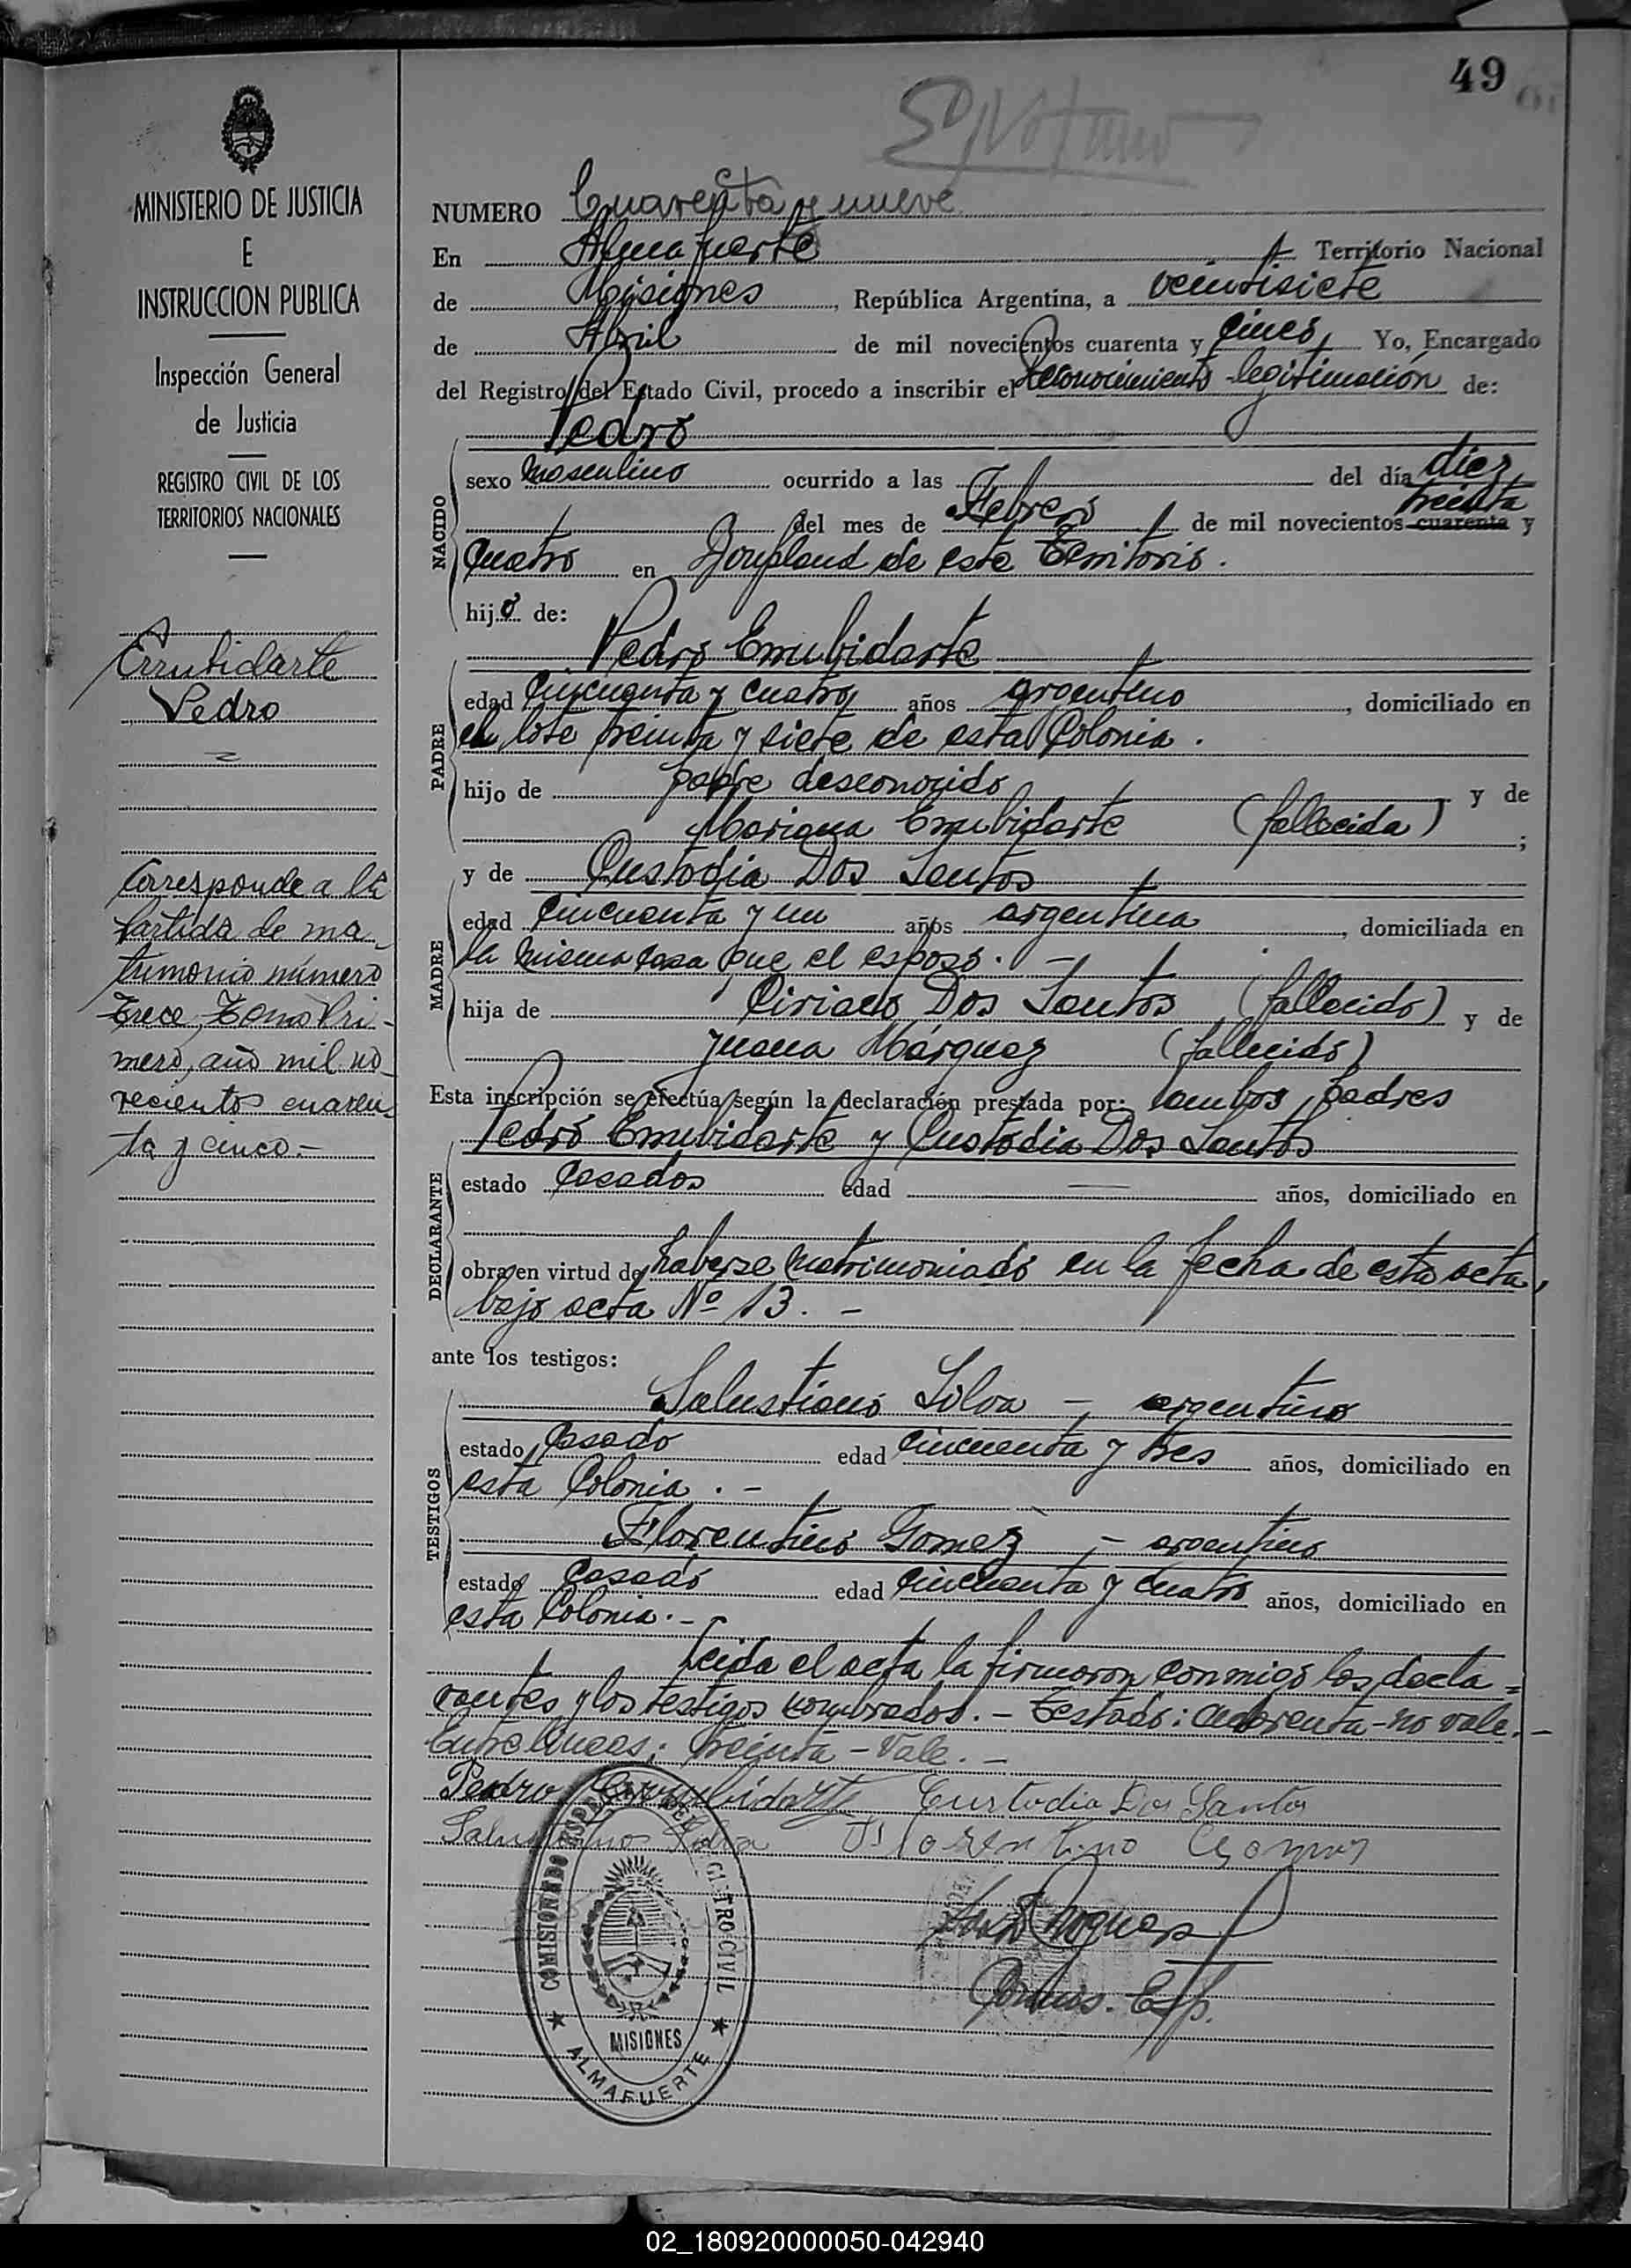 49
MINISTERIO DE JUSTICIA
E
INSTRUCCION PUBLICA
Inspección General
de Justicia
REGISTRO CIVIL DE LOS
TERRITORIOS NACIONALES
Errubidarte
Pedro
Corresponde a la
partida de ma-
trimonio número
Trece, Tomo Pri-
mero, año mil no-
vecientos cuaren-
ta y cinco.-
NUMERO Cuarenta y nueve
En Almafuerte Territorio Nacional
de Misiones, República Argentina, a veintisiete
de Abril de mil novecientos cuarenta y cinco, Yo, Encargado
del Registro del Estado Civil, procedo a inscribir el Reconocimiento-legitimación de:
Pedro
NACIDO
sexo masculino ocurrido a las del día diez
treinta
del mes de Febrero de mil novecientos cuarenta y
cuatro en Bompland de este Territorio.
hijo de:
Pedro Errubidarte
PADRE
edad cincuenta y cuatro años argentino, domiciliado en
el lote treinta y siete de esta Colonia.
hijo de padre desconocido y de
Mariana Errubidarte (fallecida);
y de Custodia Dos Santos
MADRE
edad cincuenta y un años argentina, domiciliada en
la misma casa que el esposo.-
hija de Ciriaco Dos Santos (fallecido) y de
Juana Márquez (fallecido)
Esta inscripción se efectúa según la declaración prestada por: ambos padres
Pedro Errubidarte y Custodia Dos Santos
DECLARANTE
estado Casados edad — años, domiciliado en
obra en virtud de haberse matrimoniado en la fecha de esta acta,
bajo acta Nº 13.-
ante los testigos:
TESTIGOS
Salustiano Silva - argentino
estado Casado edad cincuenta y tres años, domiciliado en
esta Colonia.-
Florentino Gomez - argentino
estado Casado edad cincuenta y cuatro años, domiciliado en
esta Colonia.-
Leida el acta la firmaron conmigo los decla=
rantes y los testigos nombrados.- Testado: cuarenta-no vale.-
Entrelineas: treinta-Vale.-
Pedro Errubidarte Custodia Dos Santos
Salustiano Silva Florentino Gomez
Comis. Esp.
COMISIONADO ESPECIAL DEL REGISTRO CIVIL
MISIONES
ALMAFUERTE
02_180920000050-042940